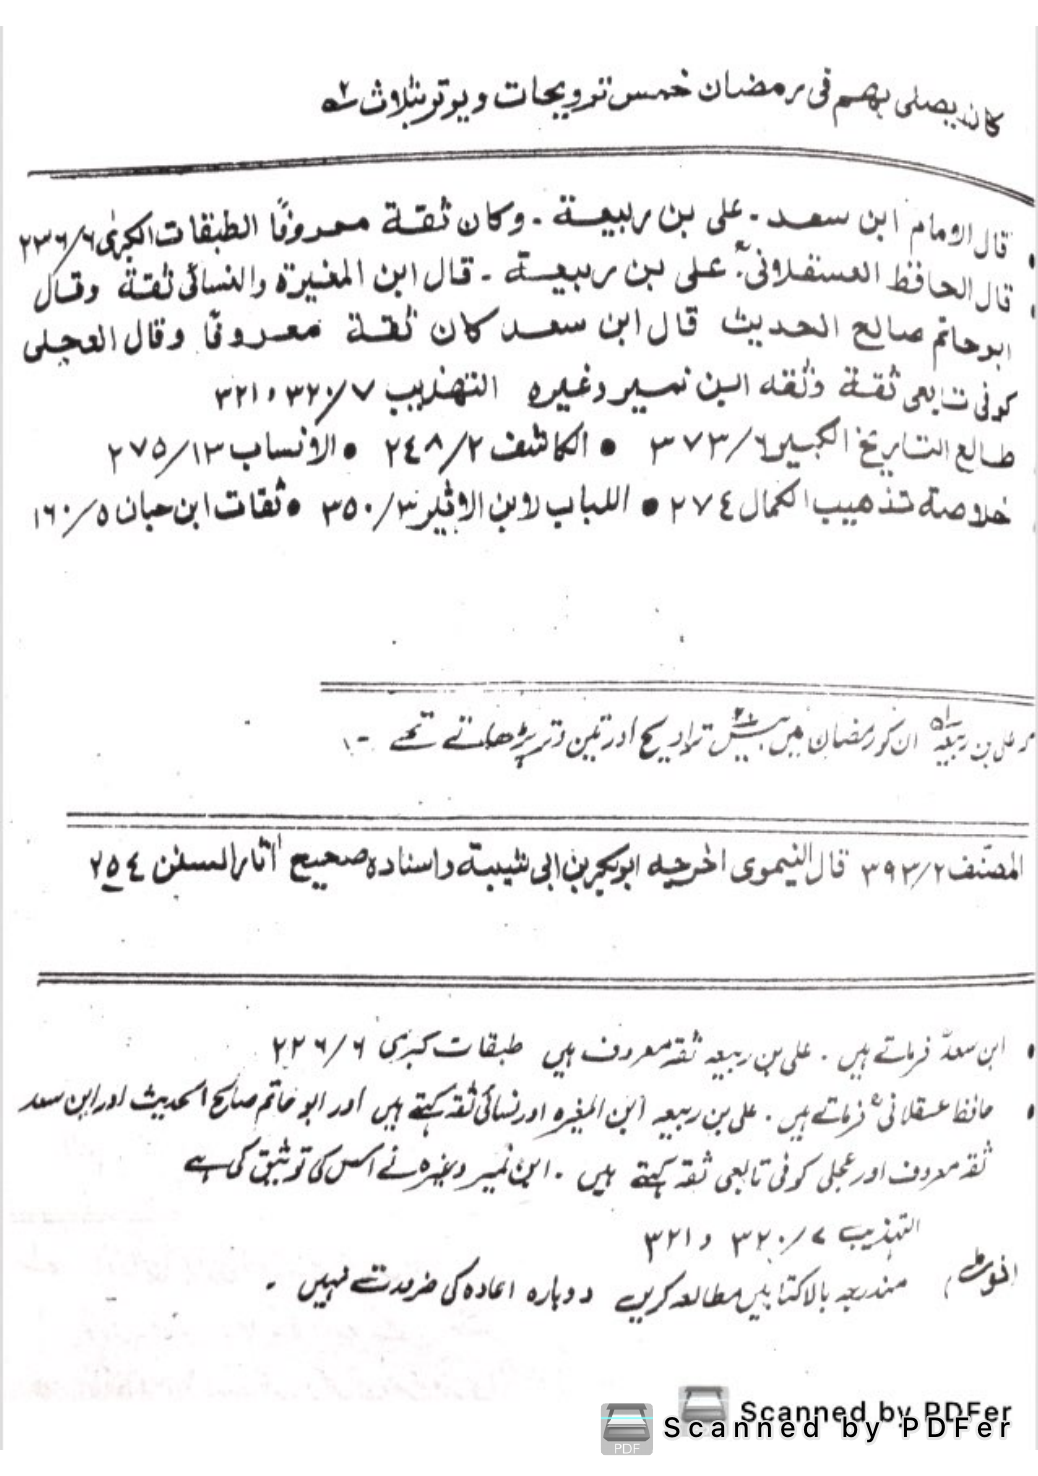 كان يصلي بهم في رمضان خمس ترويحات ويوتر بثلاث ٢
• قال الامام ابن سعد - علي بن ربيعة - وكان ثقة معروفًا الطبقات الكبرى ٢٣٦/٦
• قال الحافظ العسقلاني علي بن ربيعة - قال ابن المغيرة والنسائي ثقة وقال
ابو حاتم صالح الحديث قال ابن سعد كان ثقة معروفًا وقال العجلي
كوفي تابعي ثقة وثقه ابن نمير وغيره التهذيب ٣٢٠/٧ و ٣٢١
طالع التاريخ الكبير ٣٧٣/٦ • الكاشف ٢٤٨/٢ • الانساب ٢٧٥/١٣
خلاصة تذهيب الكمال ٢٧٤ • اللباب لابن الاثير ٣٥٠/٣ • ثقات ابن حبان ١٦٠/٥
علی بن ربیعہ ان کو رمضان میں بیس تراویح اور تین وتر پڑھاتے تھے -
المصنف ٣٩٣/٢ قال النيموي اخرجه ابوبكر بن ابي شيبة واسناده صحيح آثار السنن ٢٥٤
• ابن سعدؒ فرماتے ہیں ۔ علی بن ربیعہ ثقہ معروف ہیں طبقات کبری ٢٢٦/٦
• حافظ عسقلانیؒ فرماتے ہیں ۔ علی بن ربیعہ ابن المغیرہ اور نسائی ثقہ کہتے ہیں اور ابو حاتم صالح الحدیث اور ابن سعد
ثقہ معروف اور عجلی کوفی تابعی ثقہ کہتے ہیں ۔ ابن نمیر وغیرہ نے اس کی توثیق کی ہے
التہذیب ٣٢٠/٧ و ٣٢١
(نوٹ) مندرجہ بالا کتابیں مطالعہ کریں دوبارہ اعادہ کی ضرورت نہیں ۔
Scanned by PDFer
Scanned by PDFer
PDF